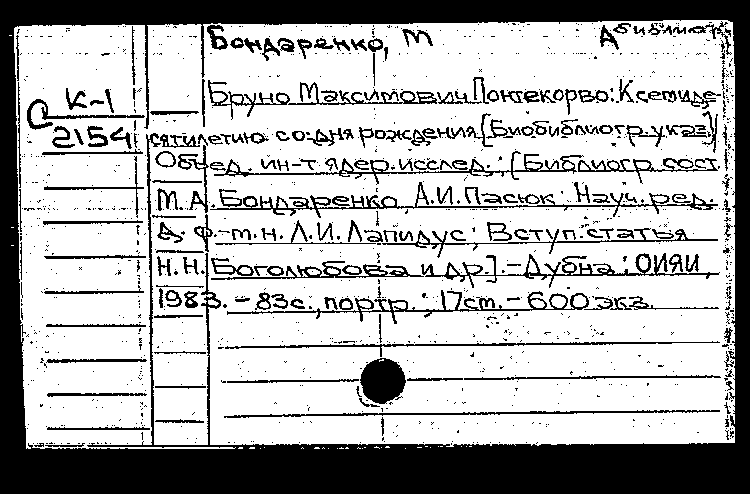 Бондаренко, М
А библиогр.
С К-1
2154
Бруно Максимович Понтекорво: К семиде-
сятилетию со дня рождения [Биобиблиогр. указ.]/
Объед. ин-т ядер. исслед.; [Библиогр. сост.
М.А. Бондаренко, А.И. Пасюк; Науч. ред.
д. ф.-т.н. Л.И. Лапидус; Вступ. статья
Н.Н. Боголюбова и др.]. - Дубна: ОИЯИ,
1983. - 83с., портр.; 17ст. - 600 экз.